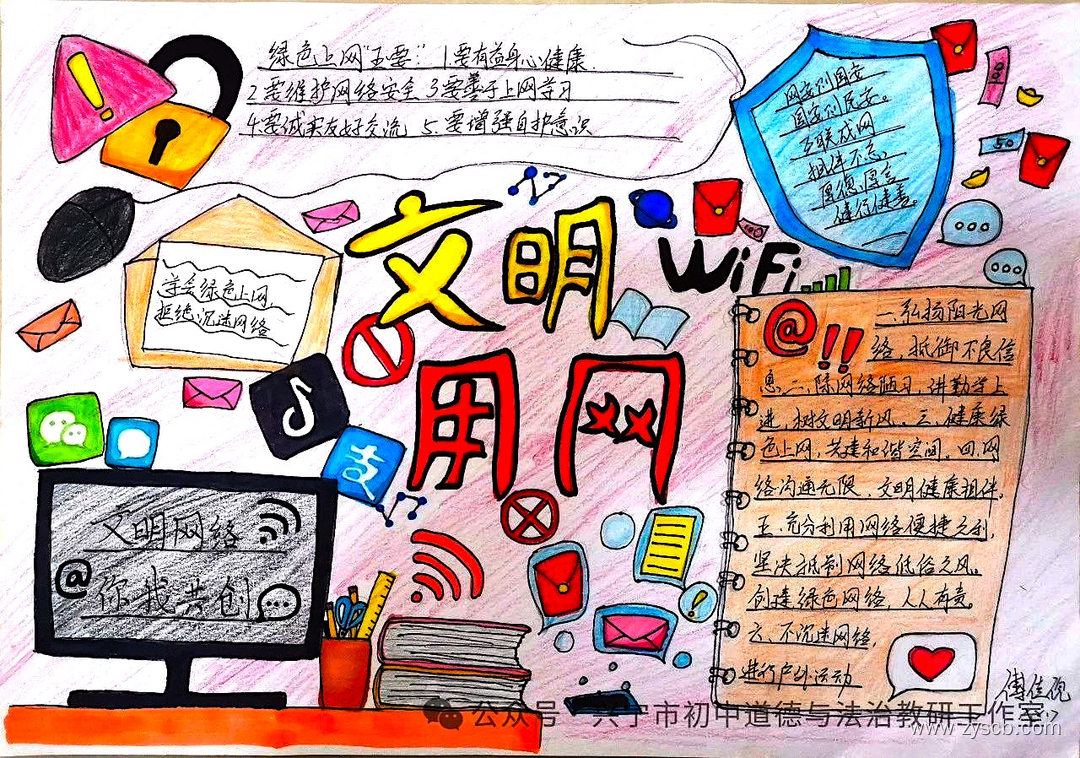 绿色上网"五要": 1.要有益身心健康.
2 要维护网络安全 3 要善于上网学习
4.要诚实友好交流 5.要增强自护意识
网安则国安
国安则民安。
互联成网
相伴不忘,
网德、网言
健行健善。
100
50
100
学会绿色上网,
拒绝沉迷网络
文明
用网
WiFi
@!!
一.弘扬阳光网
络,抵御不良信
息.二.除网络陋习,讲勤学上
进,树文明新风。三.健康绿
色上网,共建和谐空间.四.网
络沟通无限,文明健康相伴,
五.充分利用网络便捷之利,
坚决抵制网络低俗之风。
创建绿色网络,人人有责。
六、不沉迷网络,
进行户外运动
支
文明网络
@
你我共创
傅佳倪
公众号·兴宁市初中道德与法治教研工作室
www.zyscb.com